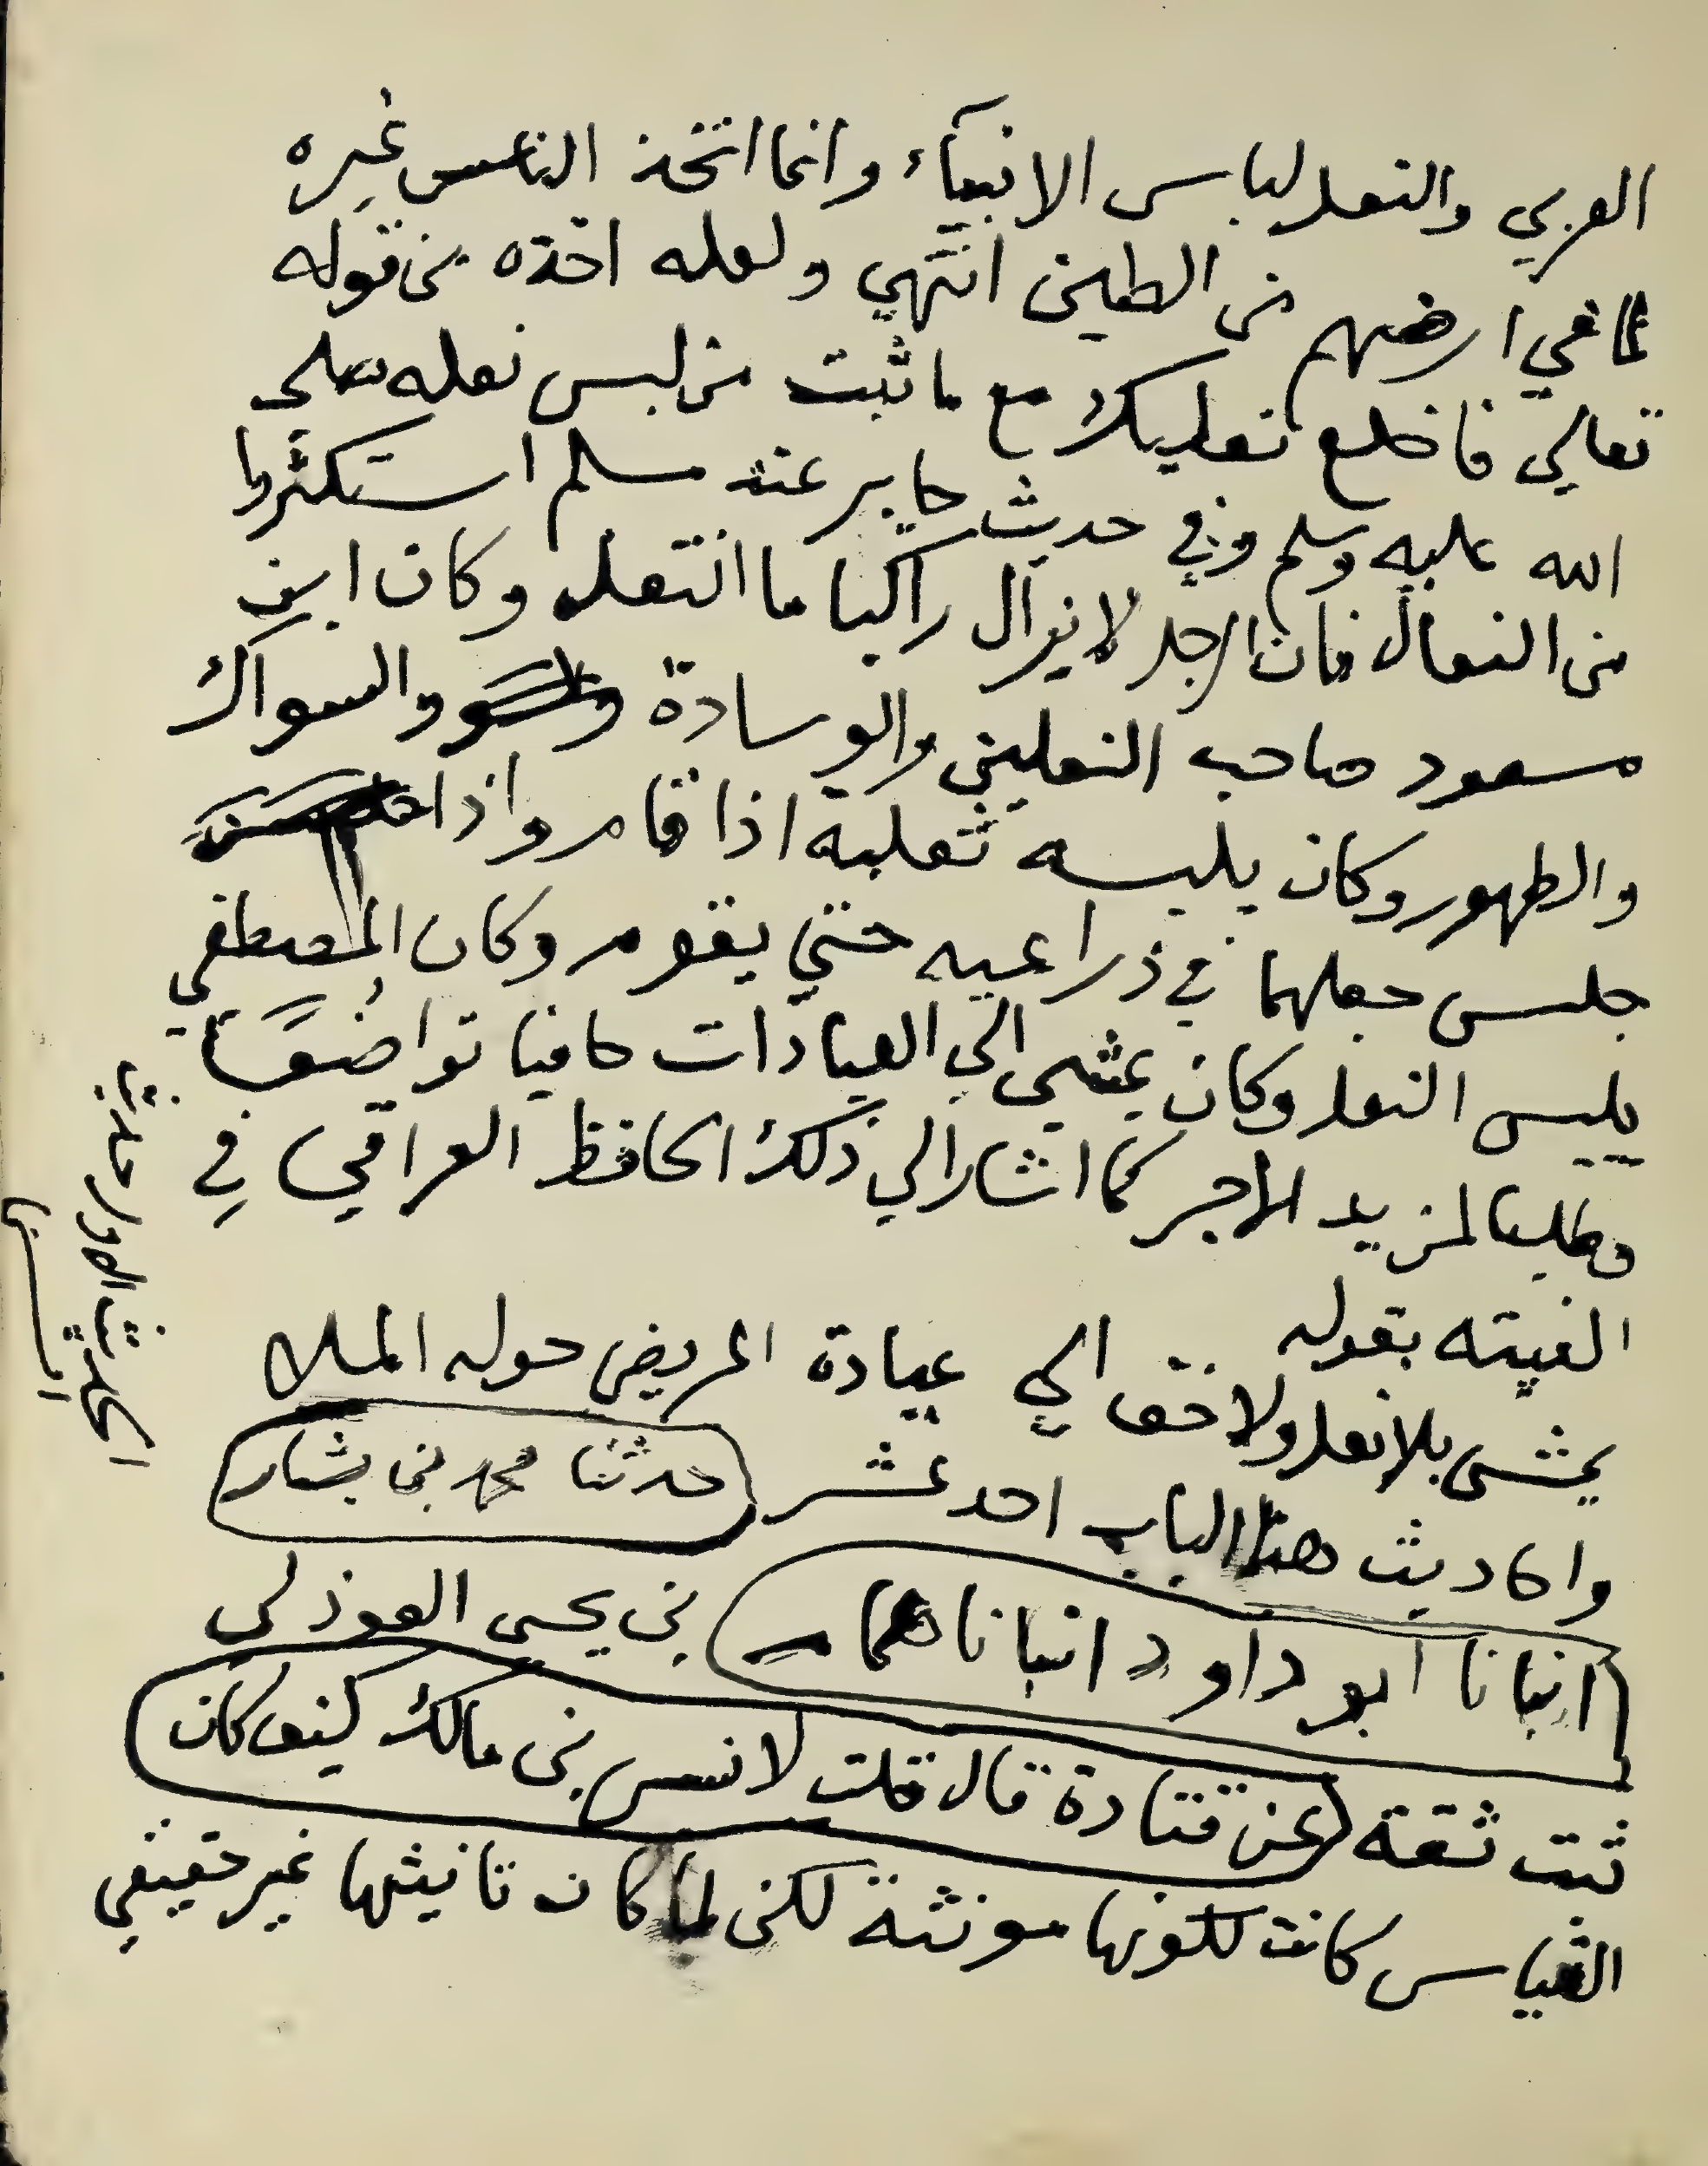 العربي والنعل لباس الانبيآء وانما اتخذ الناس غيره
لما في ارضهم من الطين انتهي ولعله اخذه من قوله
تعالي فاخلع نعليك مع ما ثبت من لبس نعله صلى
الله عليه وسلم وفي حديث جابر عند مسلم استكثروا
من النعال فان الرجل لا يزال راكبا ما انتعل وكان ابن
مسعود صاحب النعلين والوسادة والسواك
والطهور وكان يلبسه نعليه اذا قام واذا
جلس جعلهما في ذراعيه حتي يقوم وكان المصطفي
يلبس النعل وكان يمشي الي العيادات حافيا تواضعًا
وطلبا لمزيد الاجر كما اشار الي ذلك الحافظ العراقي في
الفيته بقوله
يمشي بلا نعل ولا خف الي عيادة المريض حوله الملا
واحاديث هذا الباب احد عشر حدثنا محمد بن بشار
انبانا ابو داود انبانا همام بن يحيى العوذلي
ثبت ثقة عن قتادة قال قلت لانس بن مالك كيف كان
القياس كانت لكونها مونثة لكن لما كان تانيثها غير حقيقي
الحديث الاول حديث